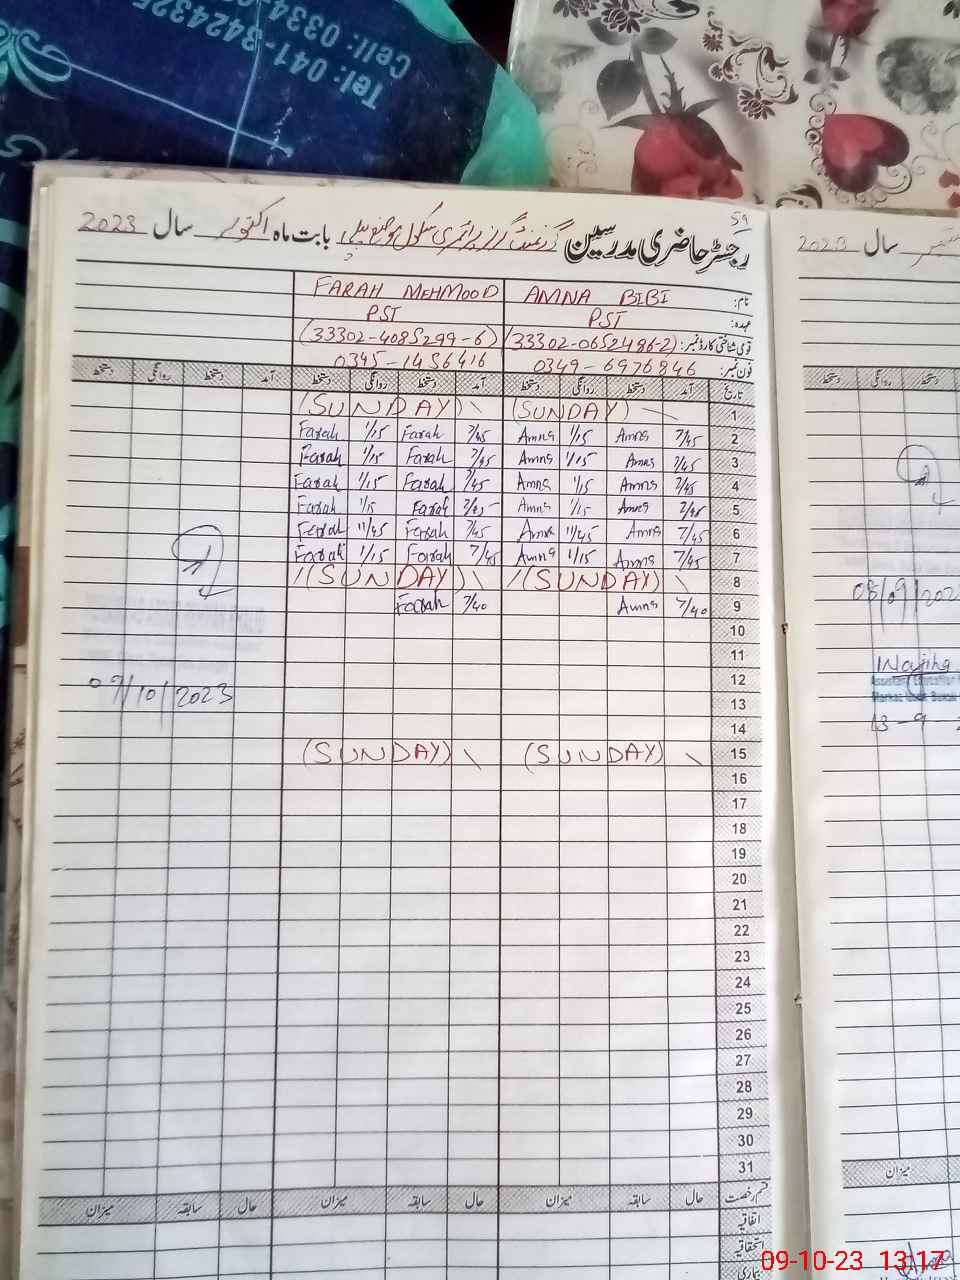 Tel: 041-3424325
Cell: 0334
59
رجسٹر حاضری مدرسین گورنمنٹ گرلز پرائمری سکول موضع بابت ماہ اکتوبر سال 2023
نام: AMNA BIBI FARAH MEHMOOD
عہدہ: PST PST
قومی شناختی کارڈ نمبر: (33302-0652486-2) (33302-4085299-6)
فون نمبر: 0349-6976846 0345-1456416
تاریخ آمد دستخط روانگی دستخط آمد دستخط روانگی دستخط آمد دستخط روانگی دستخط
1 (SUNDAY) (SUNDAY)
2 7/45 Amna 1/15 Amna 7/45 Farah 1/15 Farah
3 7/45 Amna 1/15 Amna 7/45 Farah 1/15 Farah
4 7/45 Amna 1/15 Amna 7/45 Farah 1/15 Farah
5 7/45 Amna 1/15 Amna 7/45 Farah 1/15 Farah
6 7/45 Amna 11/45 Amna 7/45 Farah 11/45 Farah
7 7/45 Amna 1/15 Amna 7/45 Farah 1/15 Farah
8 (SUNDAY) (SUNDAY)
9 7/40 Amna 7/40 Farah
10
11
12
09/10/2023
13
14
15 (SUNDAY) (SUNDAY)
16
17
18
19
20
21
22
23
24
25
26
27
28
29
30
31
قسم رخصت حال سابقہ میزان حال سابقہ میزان حال سابقہ میزان
اتفاقیہ
استحقاقیہ
بیماری
سال 2023
دستخط روانگی دستخط
08/09/202
Wajiha
Assistant Education
Markaz
13-9-2
میزان
09-10-23 13:17